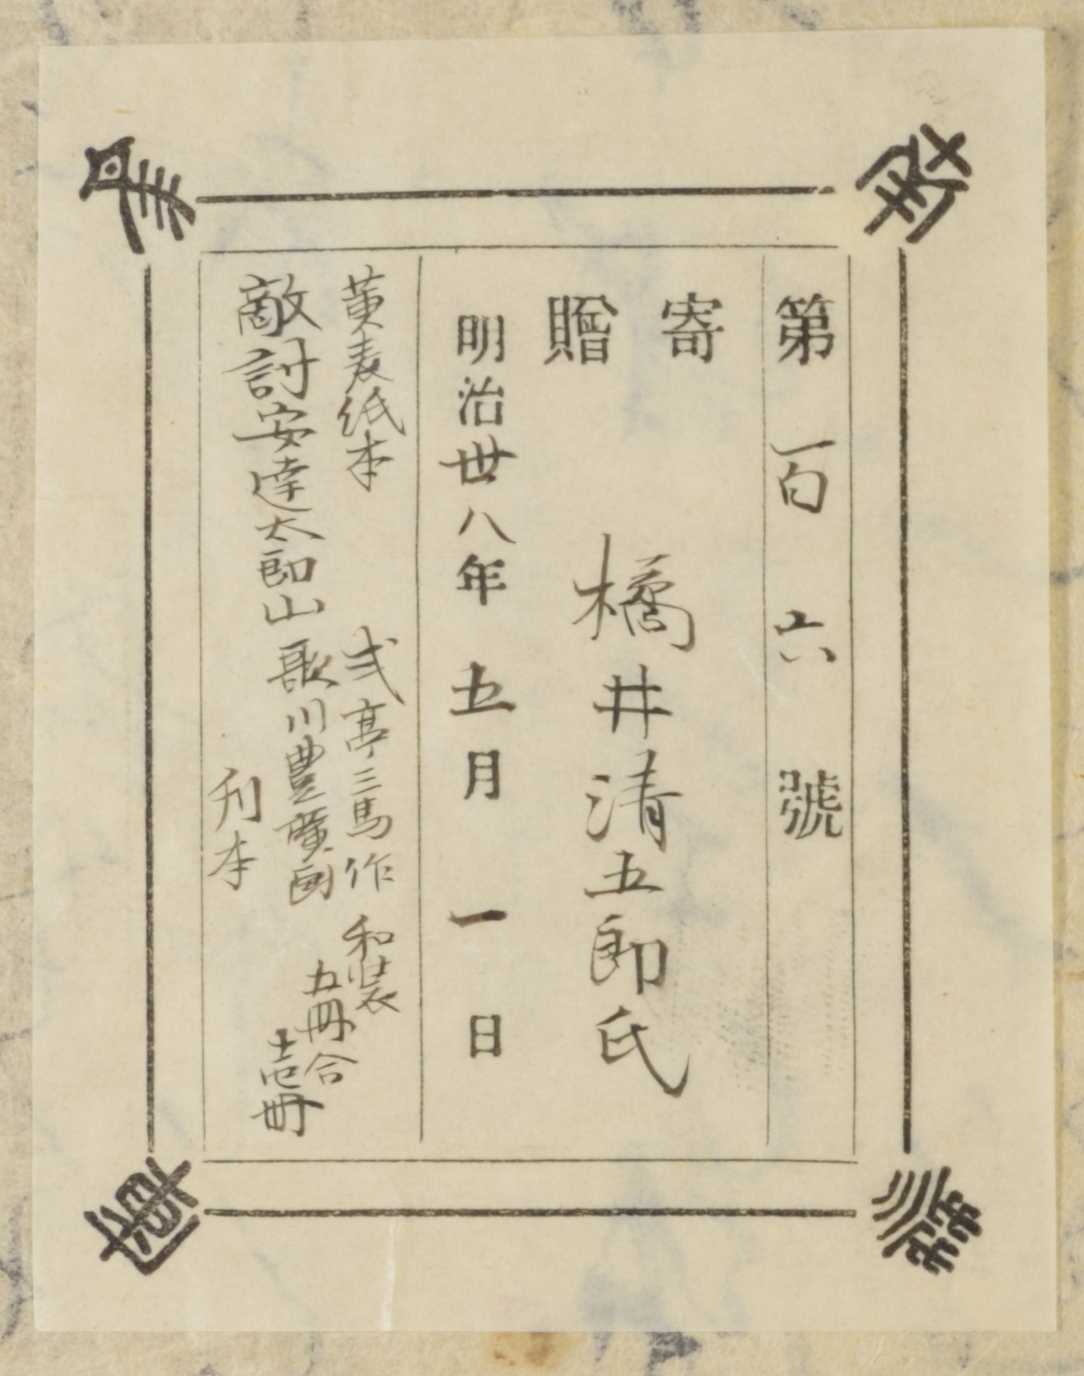 第百六號
寄贈
橘井清五郎氏
明治廿八年五月一日
黄表紙本
敵討安達太郎山
式亭三馬作
歌川豊廣画
刊本
和装
五冊合
壱冊